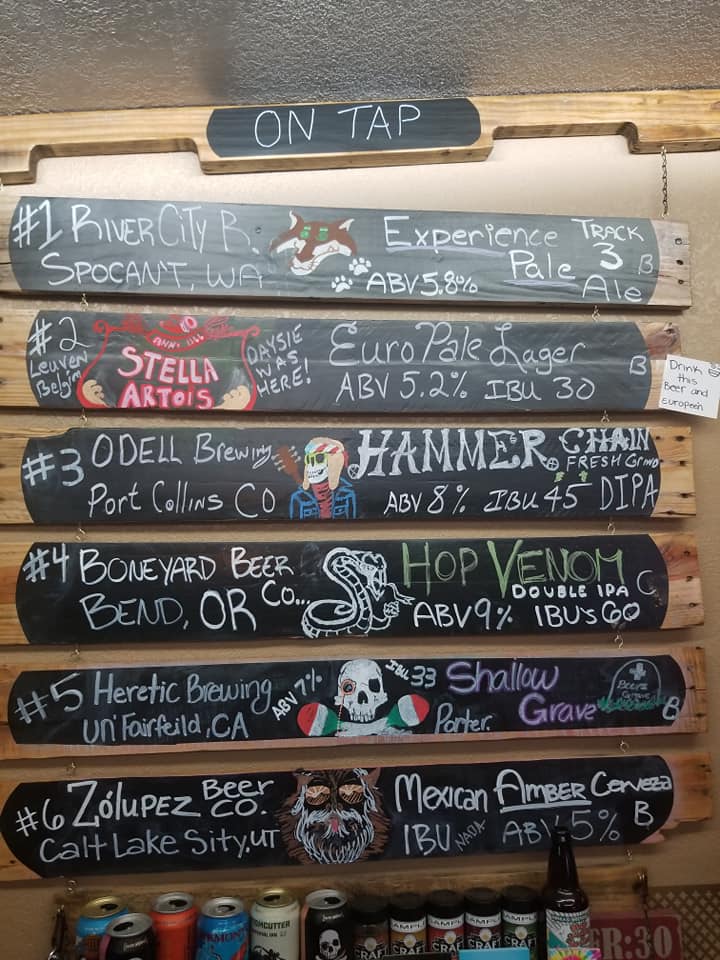 ON TAP
#1 RIVER CITY R.
SPOCAN'T, WA
Experience
Pale
TRACK
3
Ale
B
ABV 5.8%
#2
Leuven
Belgim
STELLA
ARTOIS
DAYSIE
WAS
HERE!
Euro Pale Lager
ABV 5.2% IBU 30
B
Drink
this
Beer and
European
#3 ODELL Brewing
Port Collins CO
HAMMER CHAIN
FRESH Grind
ABV 8% IBU 45 DIPA
#4 BONEYARD BEER
CO...
BEND, OR
HOP VENOM
DOUBLE IPA
C
ABV 9% IBU's 60
#5 Heretic Brewing
Un'Fairfeild, CA
ABV 7%
IBU 33
Shallow
Grave
Porter.
Beers
Grave
B
#6 ZÓLUPEZ BEER
CO.
Calt Lake Sity, UT
Mexican AMBER Cerveza
IBU NADA ABV 5% B
CRAF
CRAF
CRAF
CRAF
R:30